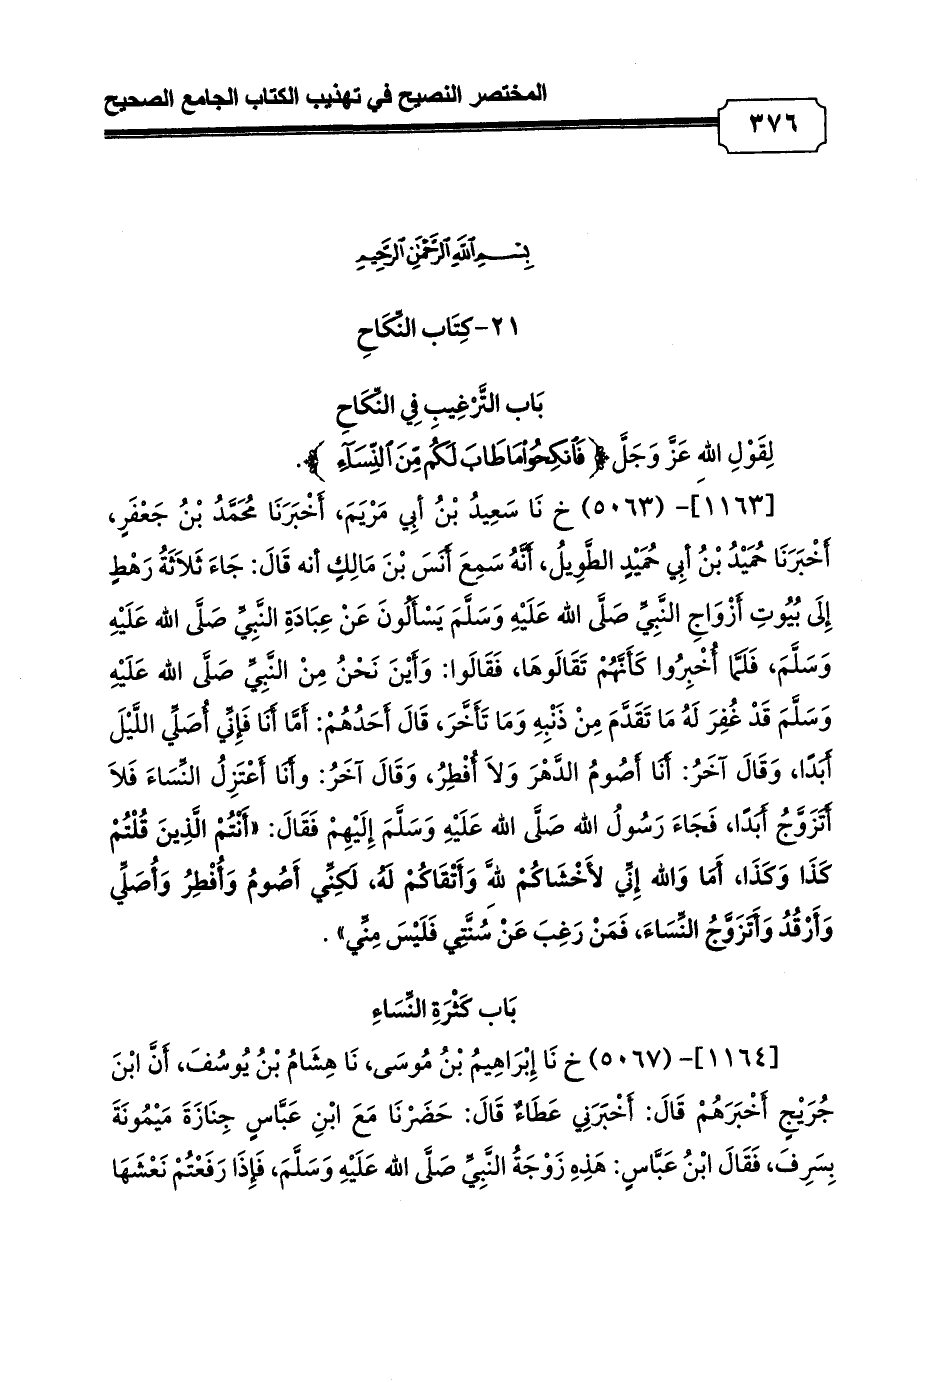 المختصر النصيح في تهذيب الكتاب الجامع الصحيح
٣٧٦
بِسْمِ اللَّهِ الرَّحْمَنِ الرَّحِيمِ
٢١- كِتَاب النِّكَاحِ
بَاب التَّرْغِيبِ فِي النِّكَاحِ
لِقَوْلِ اللهِ عَزَّ وَجَلَّ ﴿فَانكِحُوا مَا طَابَ لَكُم مِّنَ النِّسَآءِ﴾.
[١١٦٣]- (٥٠٦٣) خ نَا سَعِيدُ بْنُ أبِي مَرْيَمَ، أَخْبَرَنَا مُحَمَّدُ بْنُ جَعْفَرٍ،
أَخْبَرَنَا حُمَيْدُ بْنُ أبِي حُمَيْدٍ الطَّوِيلُ، أَنَّهُ سَمِعَ أَنَسَ بْنَ مَالِكٍ أنه قَالَ: جَاءَ ثَلاَثَةُ رَهْطٍ
إِلَى بُيُوتِ أَزْوَاجِ النَّبِيِّ صَلَّى الله عَلَيْهِ وَسَلَّمَ يَسْأَلُونَ عَنْ عِبَادَةِ النَّبِيِّ صَلَّى الله عَلَيْهِ
وَسَلَّمَ، فَلَمَّا أُخْبِرُوا كَأَنَّهُمْ تَقَالُوهَا، فَقَالُوا: وَأَيْنَ نَحْنُ مِنْ النَّبِيِّ صَلَّى الله عَلَيْهِ
وَسَلَّمَ قَدْ غُفِرَ لَهُ مَا تَقَدَّمَ مِنْ ذَنْبِهِ وَمَا تَأَخَّرَ، قَالَ أَحَدُهُمْ: أَمَّا أَنَا فَإِنِّي أُصَلِّي اللَّيْلَ
أَبَدًا، وَقَالَ آخَرُ: أَنَا أَصُومُ الدَّهْرَ وَلاَ أُفْطِرُ، وَقَالَ آخَرُ: وأَنَا أَعْتَزِلُ النِّسَاءَ فَلاَ
أَتَزَوَّجُ أَبَدًا، فَجَاءَ رَسُولُ الله صَلَّى الله عَلَيْهِ وَسَلَّمَ إِلَيْهِمْ فَقَالَ: «أَنْتُمْ الَّذِينَ قُلْتُمْ
كَذَا وَكَذَا، أَمَا وَالله إِنِّي لأَخْشَاكُمْ لله وَأَتْقَاكُمْ لَهُ، لَكِنِّي أَصُومُ وَأُفْطِرُ وَأُصَلِّي
وَأَرْقُدُ وَأَتَزَوَّجُ النِّسَاءَ، فَمَنْ رَغِبَ عَنْ سُنَّتِي فَلَيْسَ مِنِّي».
بَاب كَثْرَةِ النِّسَاءِ
[١١٦٤]- (٥٠٦٧) خ نَا إِبْرَاهِيمُ بْنُ مُوسَى، نَا هِشَامُ بْنُ يُوسُفَ، أَنَّ ابْنَ
جُرَيْجٍ أَخْبَرَهُمْ قَالَ: أَخْبَرَنِي عَطَاءٌ قَالَ: حَضَرْنَا مَعَ ابْنِ عَبَّاسٍ جِنَازَةَ مَيْمُونَةَ
بِسَرِفَ، فَقَالَ ابْنُ عَبَّاسٍ: هَذِهِ زَوْجَةُ النَّبِيِّ صَلَّى الله عَلَيْهِ وَسَلَّمَ، فَإِذَا رَفَعْتُمْ نَعْشَهَا